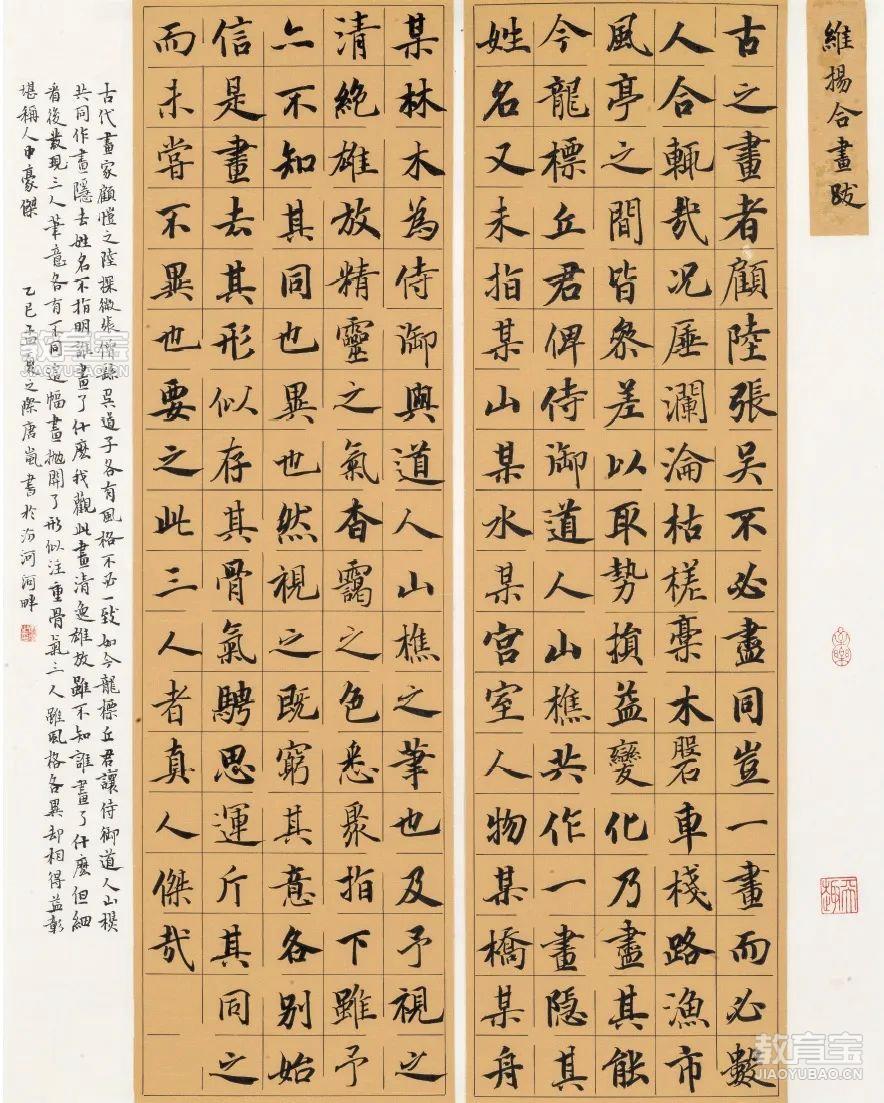 維揚合畫跋
古之畫者顧陸張吴不必盡同豈一畫而必數
人合輒哉况厓瀾淪枯槎槀木磐車棧路漁市
風亭之間皆叅差以取勢損益變化乃盡其能
今龍標丘君俾侍御道人山樵共作一畫隱其
姓名又未指某山某水某宫室人物某橋某舟
某林木為侍御與道人山樵之筆也及予視之
清絶雄放精靈之氣杳靄之色悉聚指下雖予
亦不知其同也異也然視之既窮其意各别始
信是畫去其形似存其骨氣騁思運斤其同之
而未嘗不異也要之此三人者真人傑哉
古代畫家顧愷之陸探微張僧繇吴道子各有風格不必一致如今龍標丘君讓侍御道人山樵
共同作畫隱去姓名不指明誰畫了什麽我觀此畫清逸雄放雖不知誰畫了什麽但細
看後發現三人筆意各有不同這幅畫抛開了形似注重骨氣三人雖風格各異却相得益彰
堪稱人中豪傑 乙巳孟夏之際唐嵐書於汾河河畔
教育宝
教育宝
JIAOYUBAO.CN